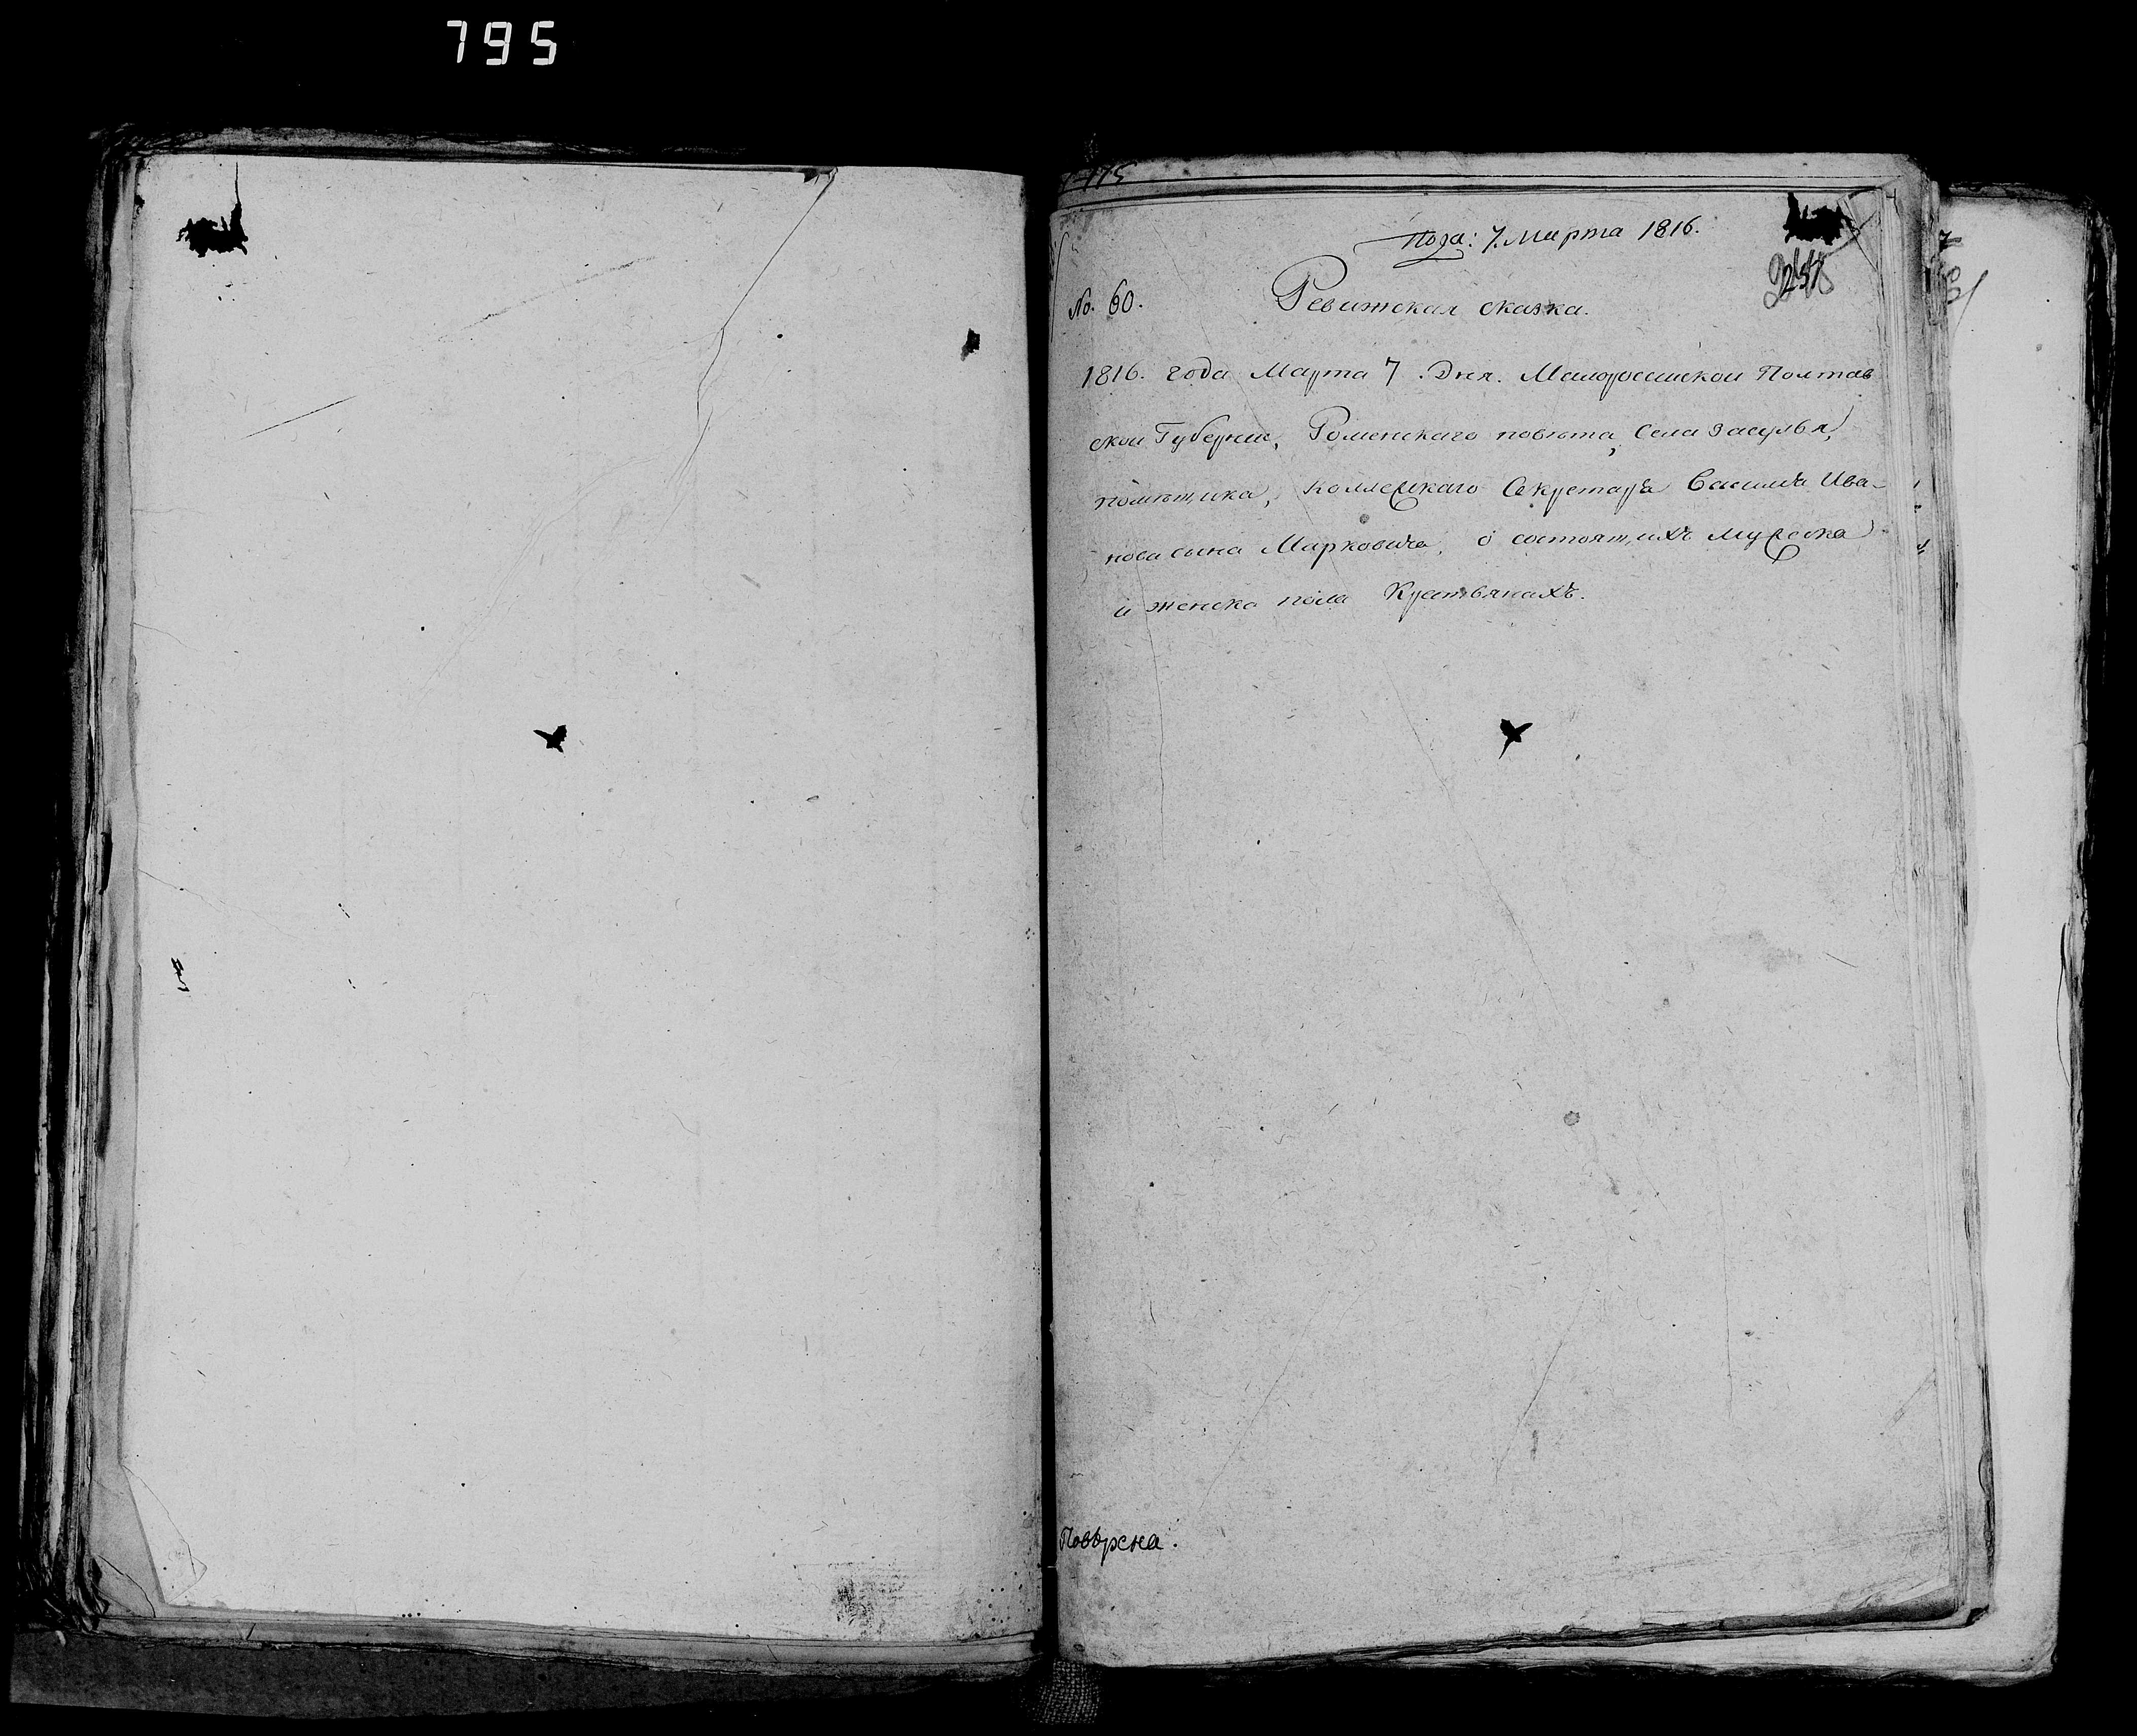 795
175
Пода: 7. Марта 1816.
257
No. 60.
Ревижская сказка.
1816. года Марта 7. Дня. Малороссиской Полтав
ской Губернии, Роменского повѣта, Села Засулья,
помѣщика, Коллежкаго Секретаря Василия Ива-
нова сына Марковича, о состоящихъ мужеска
и женска пола Крестьянахъ.
Повѣрена.